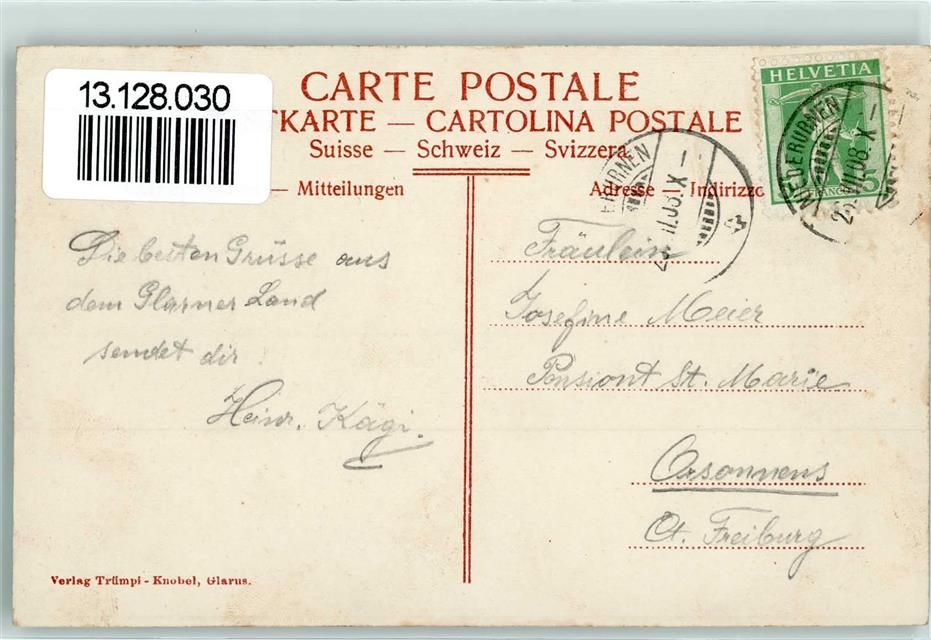 13.128.030
CARTE POSTALE
TKARTE — CARTOLINA POSTALE
Suisse — Schweiz — Svizzera
— Mitteilungen
Adresse — Indirizzo
HELVETIA
FRANCO 5
NIEDERURNEN
Die besten Grüsse aus
dem Glarner Land
sendet dir
Heinr. Kägi.
Fräulein
Josefine Meier
Pensiont St. Marie
Orsonnens
Ct. Freiburg
Verlag Trümpi - Knobel, Glarus.